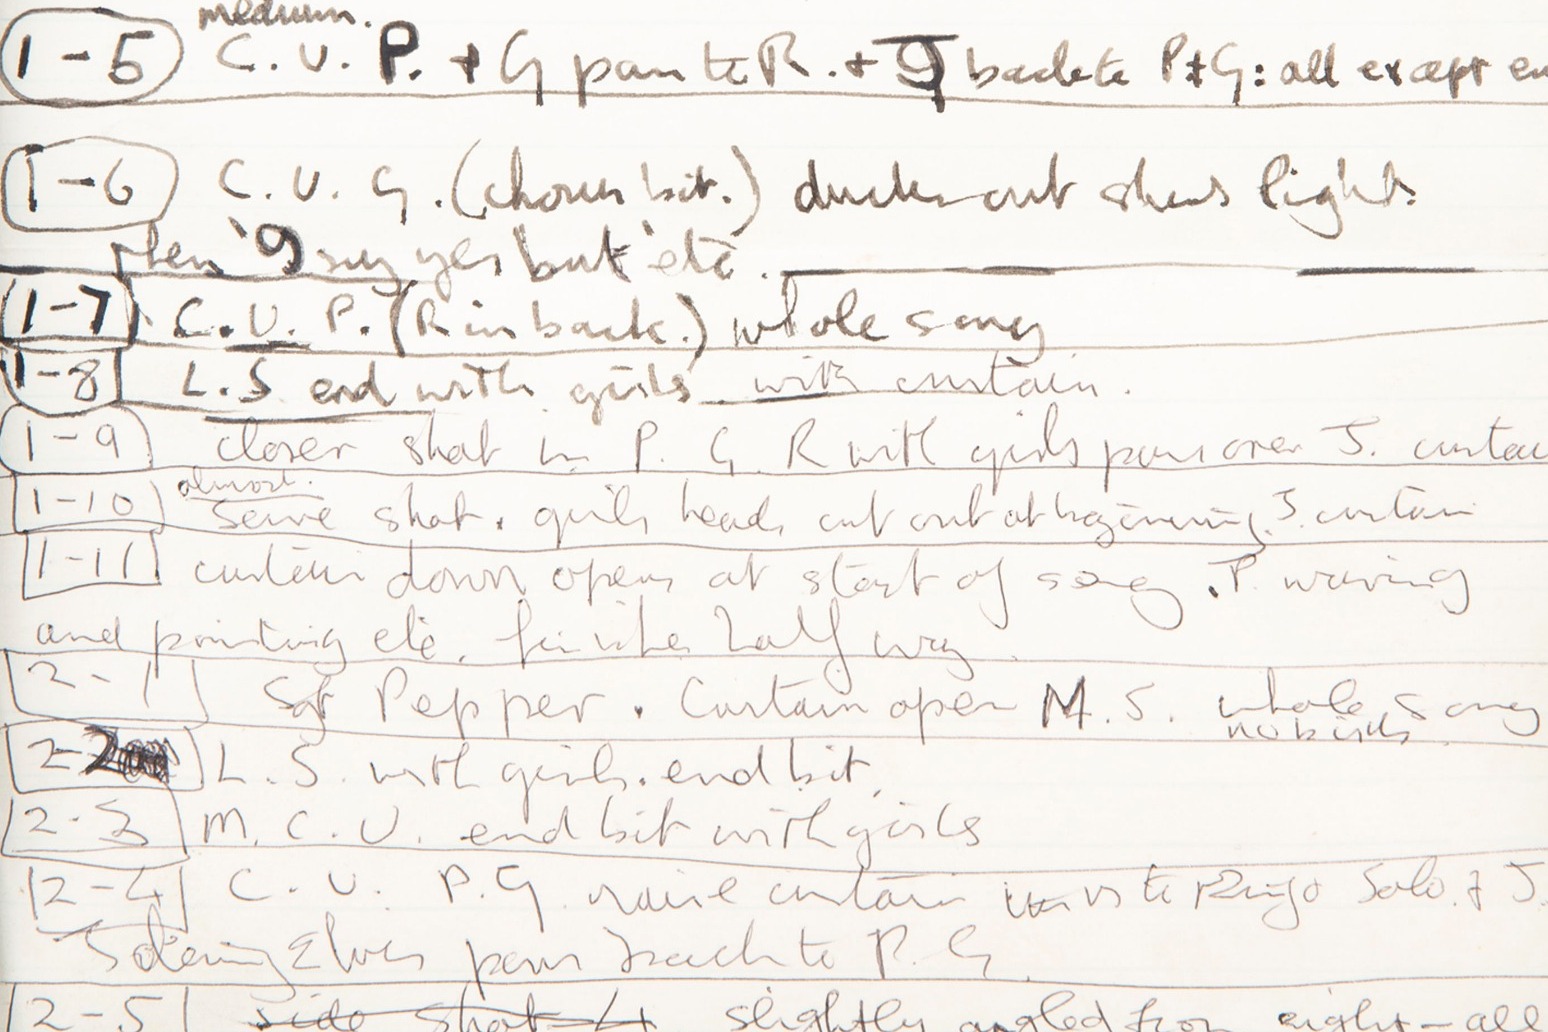 medium.
1-5 C.U. P. + G pan to R. + J back to P+G: all except en
1-6 C.U. G. (chorus bit.) ducks out shows light.
then 'I say yes but' etc.
1-7 C.U. P. (R in back.) whole song
1-8 L.S end with girls with curtain.
1-9 closer shot in P. G. R with girls pan over J. curtai
almost.
1-10 Same shot. girls heads cut out at beginning J. curtain
1-11 curtain down opens at start of song. P. waving
and pointing etc. finishes half way.
2-1 Sgt Pepper. Curtain open M.S. whole song
no birds
2-2 L.S. with girls. end bit.
2-3 M.C.U. end bit with girls
2-4 C.U. P.G. raise curtain to Ringo Solo. + J.
pan back to P. G.
2-5 side shot slightly angled from right - all